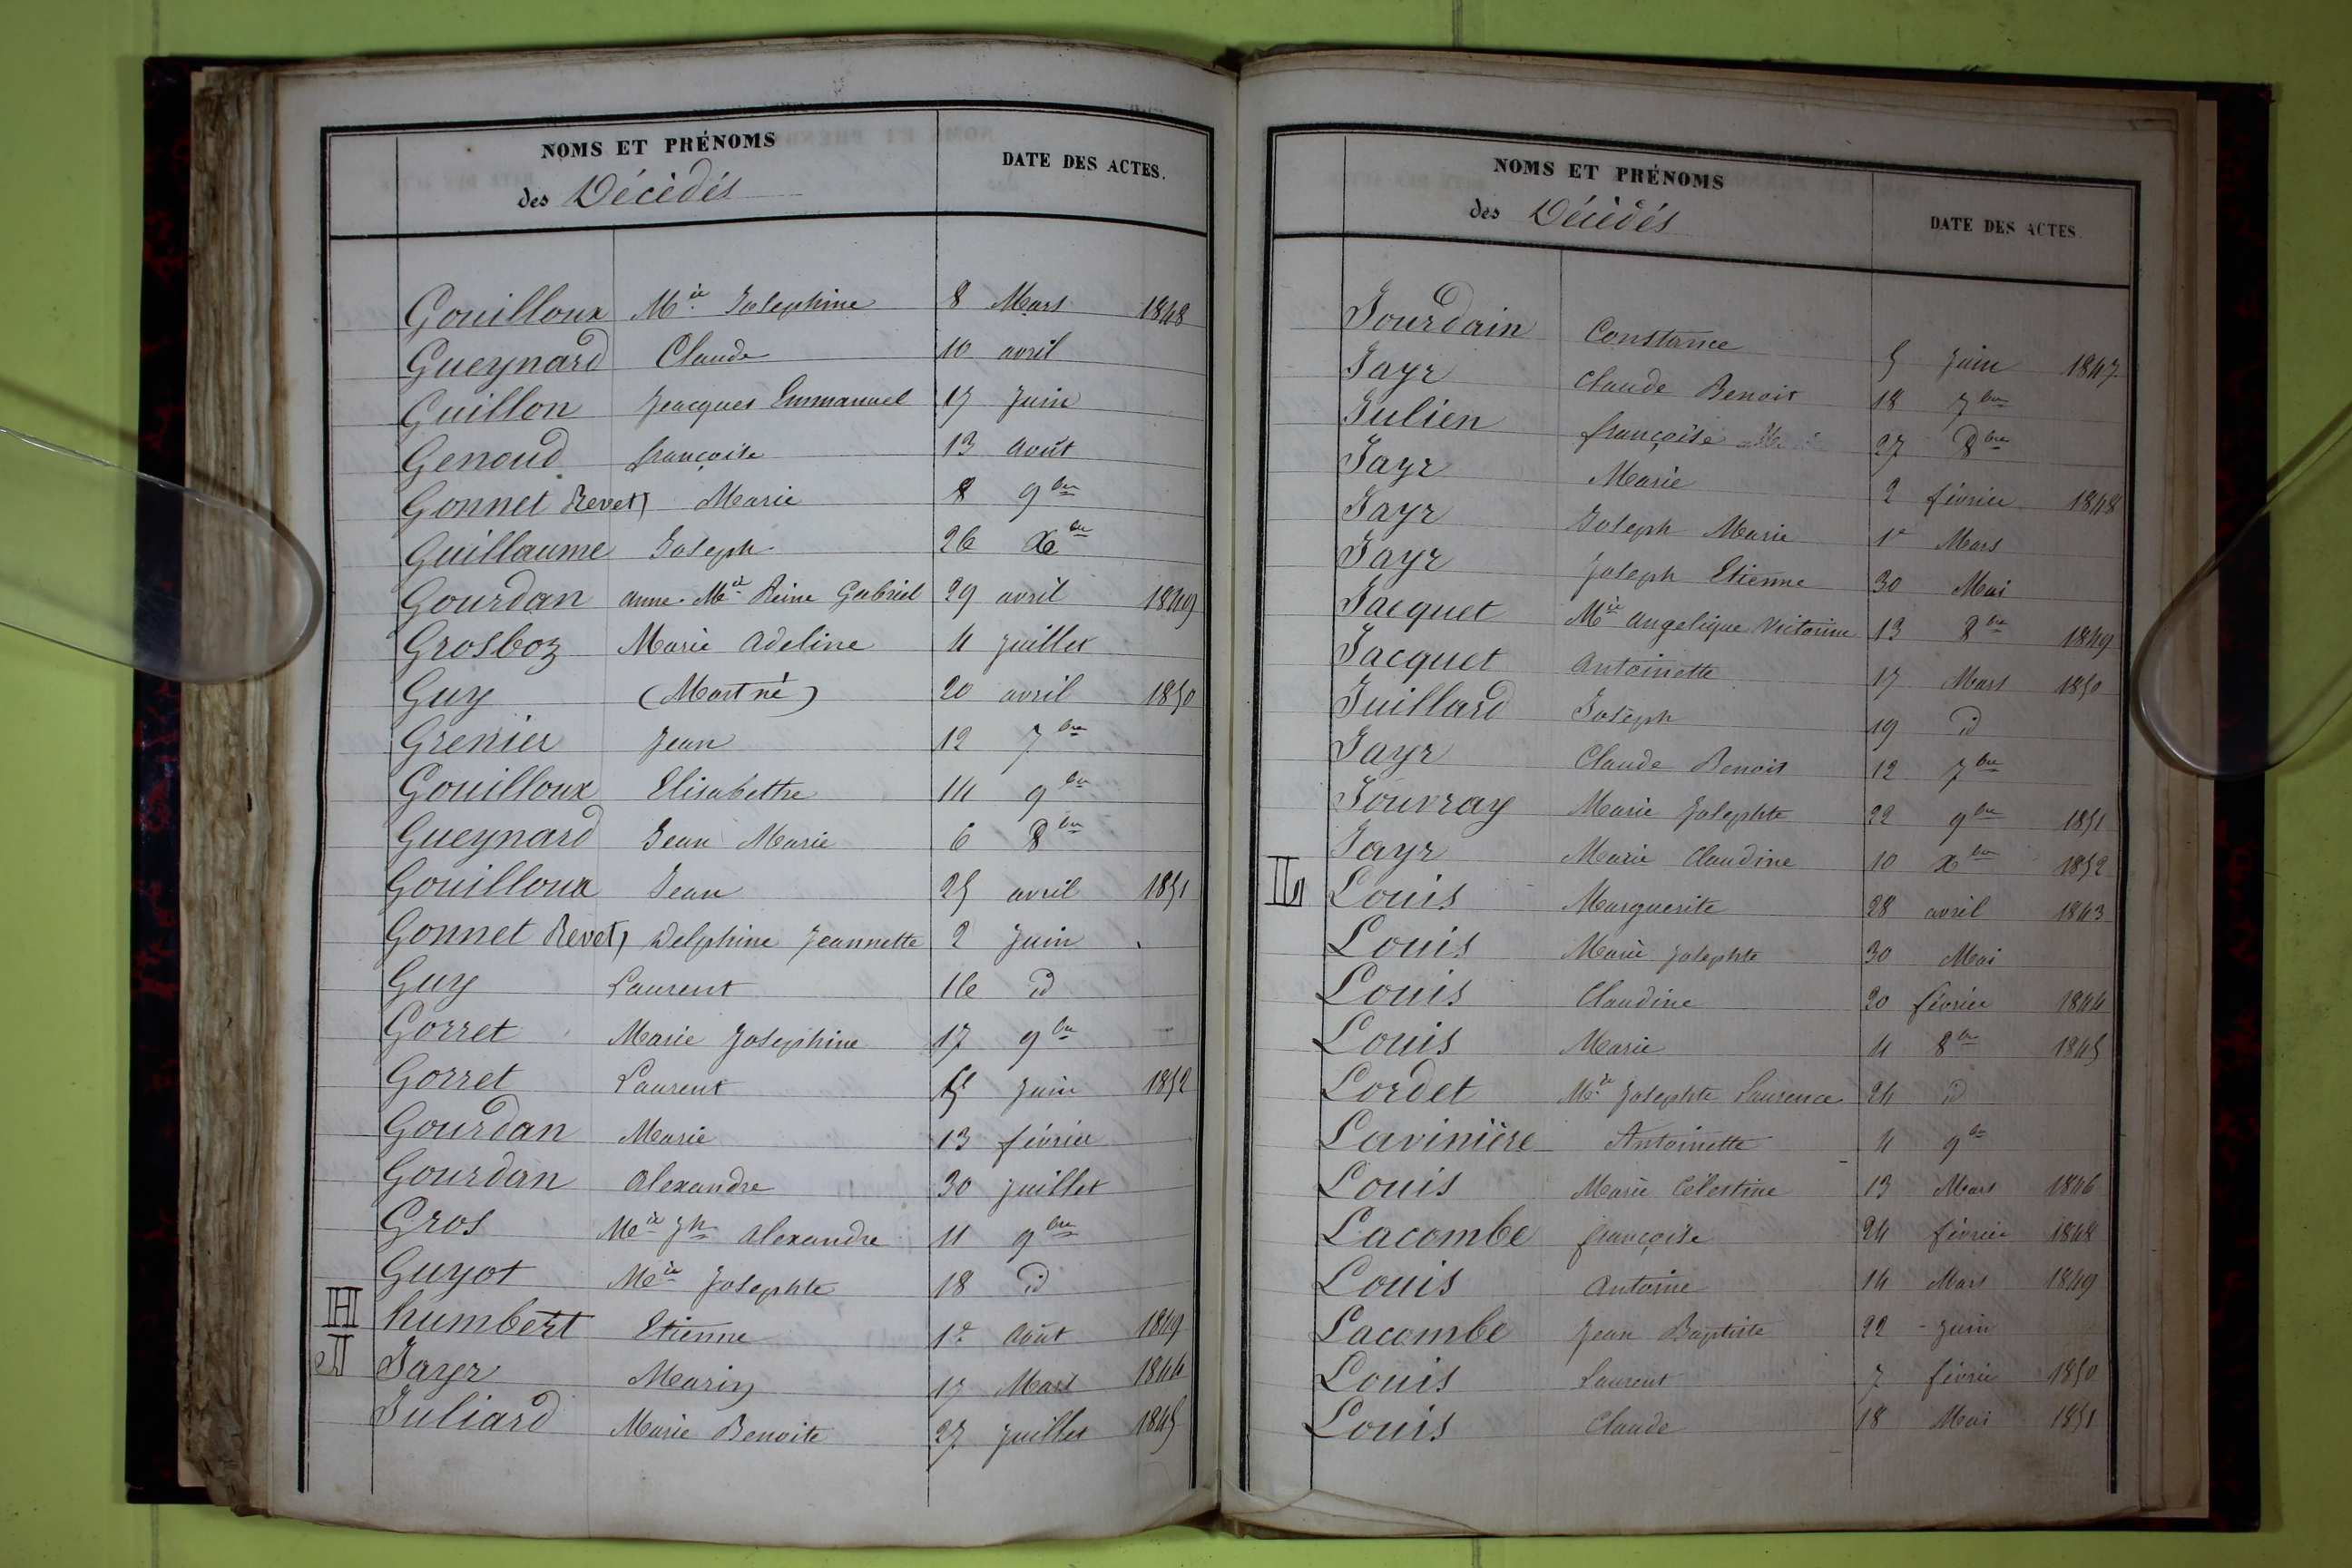 NOMS ET PRÉNOMS
des Décédés
DATE DES ACTES.
Gouilloux Mie Josephine 8 Mars 1848
Gueynard Claude 10 avril
Guillon Jacques Emmanuel 17 Juin
Genoud françoise 13 août
Gonnet Revet, Marie 8 9bre
Guillaume Joseph 26 Xbre
Gourdan anne Mie Reine Gabriel 29 avril 1849
Grosboz Marie adeline 4 juillet
Guy (Mort né) 20 avril 1850
Grenier Jean 12 7bre
Gouilloux Elisabethe 14 9bre
Gueynard Jean Marie 6 8bre
Gouilloux Jean 25 avril 1851
Gonnet Revet, Delphine Jeannette 2 Juin
Guy Laurent 16 id
Gorret Marie Josephine 17 9bre
Gorret Laurent Juin 1852
Gourdan Marie 13 février
Gourdan alexandre 30 juillet
Gros Mie Jh alexandre 11 9bre
Guyot Mie Josephte 18 id
H humbert Etienne 1er Août 1849
J Jayr Marin 17 Mars 1844
Juliard Marie Benoite 27 juillet 1845
NOMS ET PRÉNOMS
des Décédés
DATE DES ACTES.
Jourdain Constance 5 Juin 1847
Jayr Claude Benoit 18 7bre
Julien françoise 27 8bre
Jayr Marie 2 février 1848
Jayr Joseph Marie 1er Mars
Jayr Joseph Etienne 30 Mai
Jacquet Mie angelique Victorine 13 8bre 1849
Jacquet antoinette 17 Mars 1850
Juillard Joseph 19 id
Jayr Claude Benoit 12 7bre
Jouvray Marie Josephte 22 9bre 1851
Jayr Marie Claudine 10 Xbre 1852
L Louis Marguerite 28 avril 1843
Louis Marie Josephte 30 Mai
Louis Claudine 20 février 1844
Louis Marie 4 8bre 1845
Lordet Mie Josephte Laurence 24 id
Lavinière Antoinette 4 9bre
Louis Marie Célestine 13 Mars 1846
Lacombe françoise 24 février 1848
Louis antoine 14 Mars 1849
Lacombe Jean Baptiste 22 Juin
Louis Laurent 7 février 1850
Louis Claude 18 Mai 1851